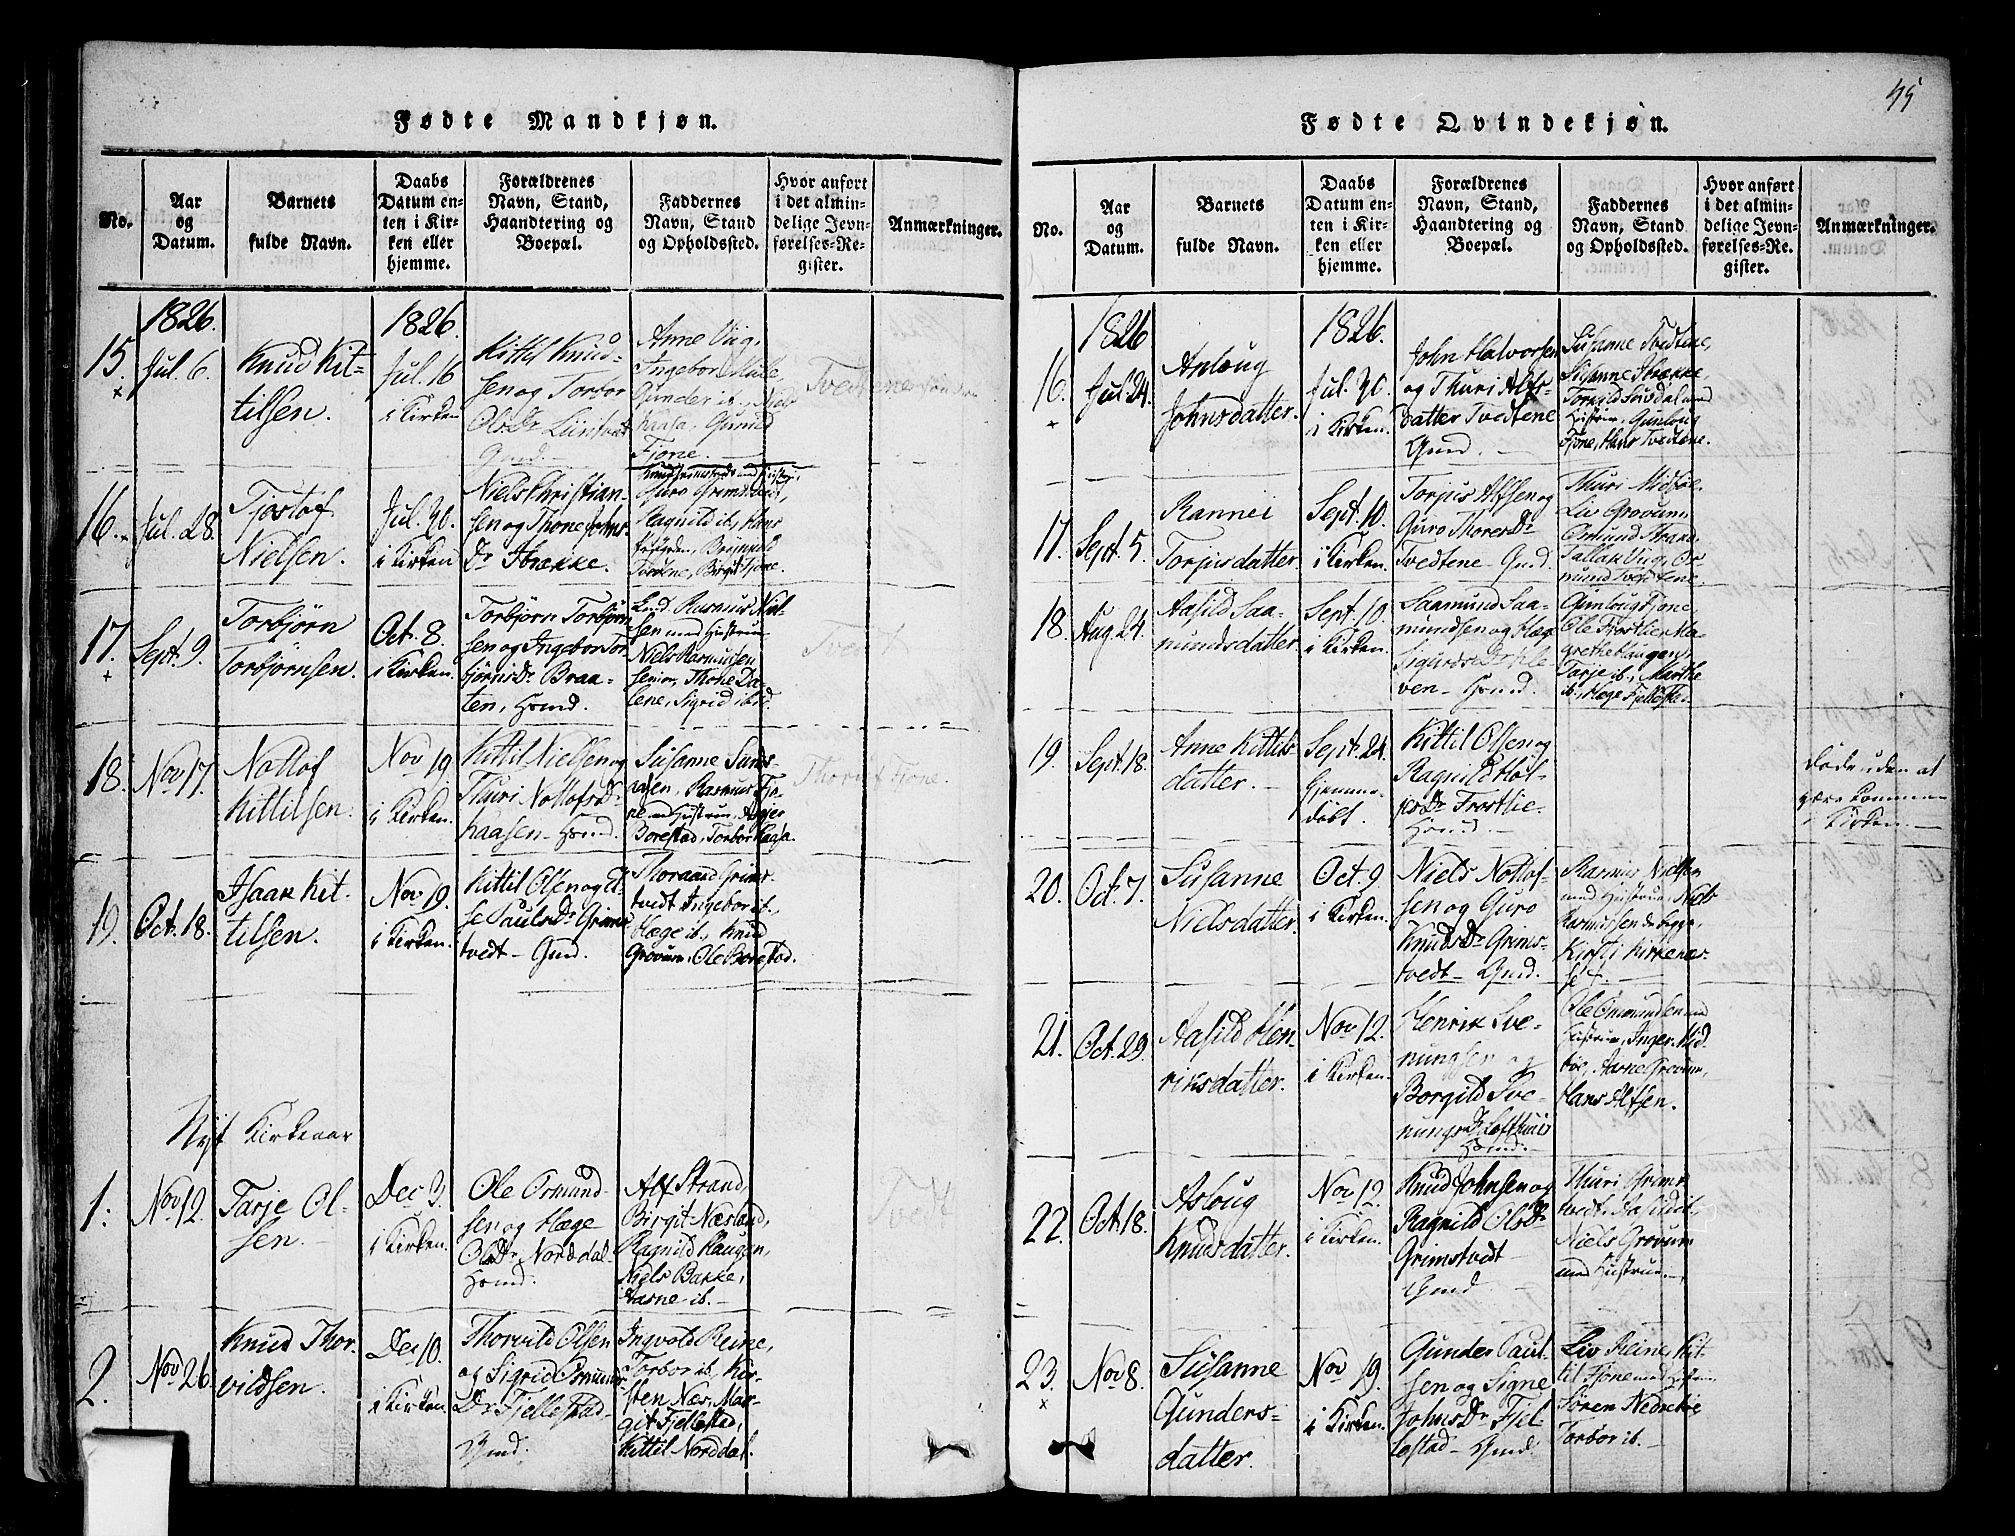 45
Fødte Mandkjøn.
No.
Aar og Datum.
Barnets fulde Navn.
Daabs Datum enten i Kirken eller hjemme.
Forældrenes Navn, Stand, Haandtering og Boepæl.
Faddernes Navn, Stand og Opholdssted.
Hvor anført i det almindelige Jevnførelses-Register.
Anmærkninger.
15.
1826.
Jul. 6.
Knud Kit-
tilsen.
1826.
Jul. 16
i Kirken
Kittil Knud-
sen og Torbor
Olsdr
Gmd.
Anne Viig,
Ingebor
Gunder ib.,
Kaasa, Gunuld
Fjone.
16.
Jul. 28.
Tjostof
Nielsen.
Jul. 30.
i Kirken
Niels Christian-
sen og Thone Johns-
Dr Strække.
Guro Grimstvedt,
Ragnild ib., Hans
Brynuld
Tvedtene, Birgit Fjone.
17.
Sept. 9.
Torbjørn
Torbjørnsen.
Oct. 8.
i Kirken.
Torbjørn Torbjørn-
sen og Ingebor Tor-
bjørns Dr Braa-
ten, Hsmd.
Rasmus Niel-
sen med Hustrue
Niels Rasmussen
senior, Thone Da-
lene, Sigrid ibid.
18.
Nov 17.
Nottof
Kittilsen.
Nov 19.
i Kirken.
Kittil Nielsen og
Thuri Nottofsdr
Kaasen - Hsmd.
Susanne Sunds-
aasen, Rasmus Fjo-
ne med Hustrue, Asger
Borestad, Torbor Kaasa.
19.
Oct. 18.
Isaak Kit-
tilsen.
Nov 19.
i Kirken.
Kittil Olsen og El-
se Pauls Dr Grims-
tvedt - Gmd.
Thoraand Grims-
tvedt Ingebor ib.
Hæge ib., Knud
Grovum, Ole Borestad.
Nyt Kirkeaar
1.
Nov 12.
Tarje Ol-
sen.
Dec 3.
i Kirken.
Ole Osmund-
sen og Hæge
Olsdr Norddal
Hsmd.
Alf Strand,
Birgit Næsland,
Ragnild Haugen,
Niels Bakke,
Aasne ib.
2.
Nov 26.
Knud Thor-
vildsen.
Dec 10.
i Kirken.
Thorvild Olsen
og Sigrid Osmunds-
Dr Fjellestad-
Gmd.
Ingvold Reine,
Torbor ib., Kir-
sten Næs, Mar-
git Fjellestad,
Kittil Norddal.
Fødte Qvindekjøn.
No.
Aar og Datum.
Barnets fulde Navn.
Daabs Datum enten i Kirken eller hjemme.
Forældrenes Navn, Stand, Haandtering og Boepæl.
Faddernes Navn, Stand og Opholdssted.
Hvor anført i det almindelige Jevnførelses-Register.
Anmærkninger.
16.
1826
Jul. 24.
Anloug
Johnsdatter.
1826.
Jul. 30.
i Kirken.
John Halvorsen
og Thuri Alfs-
datter Tvedtene
Gmd.
Susanne Tvedtene,
Susanne Strække,
med
Hustrue, Gunloug
Fjone, Hans Tvedtene.
17.
Sept. 5.
Rannei
Torjusdatter.
Sept. 10.
i Kirken.
Torjus Alfsen og
Guro Thoresdr
Tvedtene - Gmd.
Thuri Midbøe,
Liv Grovum,
Osmund Strand,
Tallak Viig, Os-
mund Tvedtene.
18.
Aug. 24.
Aasild Saa-
mundsdatter.
Sept. 10.
i Kirken.
Saamund Saa-
mundsen og Hæge
Sigurdsdr Kle-
ven - Hsmd.
Gunloug Fjone,
Ole Frostlie Ma-
grethe Haugen,
Tarje ib., Marthe
ib., Hæge
19.
Sept. 18.
Anne Kittils-
datter.
Sept. 24.
hjemme-
døbt.
Kittil Olsen og
Ragnild Hol-
jes Dr Frostlie-
Hsmd.
døde uden at
være kommen
i Kirken.
20.
Oct. 7.
Susanne
Nielsdatter.
Oct. 9
i Kirken.
Niels Nottof-
sen og Guro
Knuds Dr Grims-
tvedt - Gmd.
Rasmus Nielsen
med Hustrue, Niels
Rasmussen
Kirsti Kirkenes-
set
21.
Oct. 29.
Aasild Hen-
riksdatter.
Nov 12.
i Kirken.
Henrik Sve-
nungsen og
Borgild Sve-
nungs Dr Lofthuus
Hsmd.
Ole Osmundsen med
Hustrue, Inger Mid-
bøe, Aasne Grovum,
Hans Olsen.
22.
Oct. 18.
Asloug
Knudsdatter.
Nov 12.
i Kirken.
Knud Johnsen og
Ragnild Olsdr
Grimstvedt
Gmd
Thuri Grims-
tvedt,
Niels Grovum
med Hustrue.
23.
Nov 8.
Susanne
Gunders-
datter.
Nov 19.
i Kirken.
Gunder Paul-
sen og Signe
Johns Dr Fjel-
lestad - Gmd.
Liv Reine, Kit-
til Fjone med Hustrue,
Søren
Torbor ib.